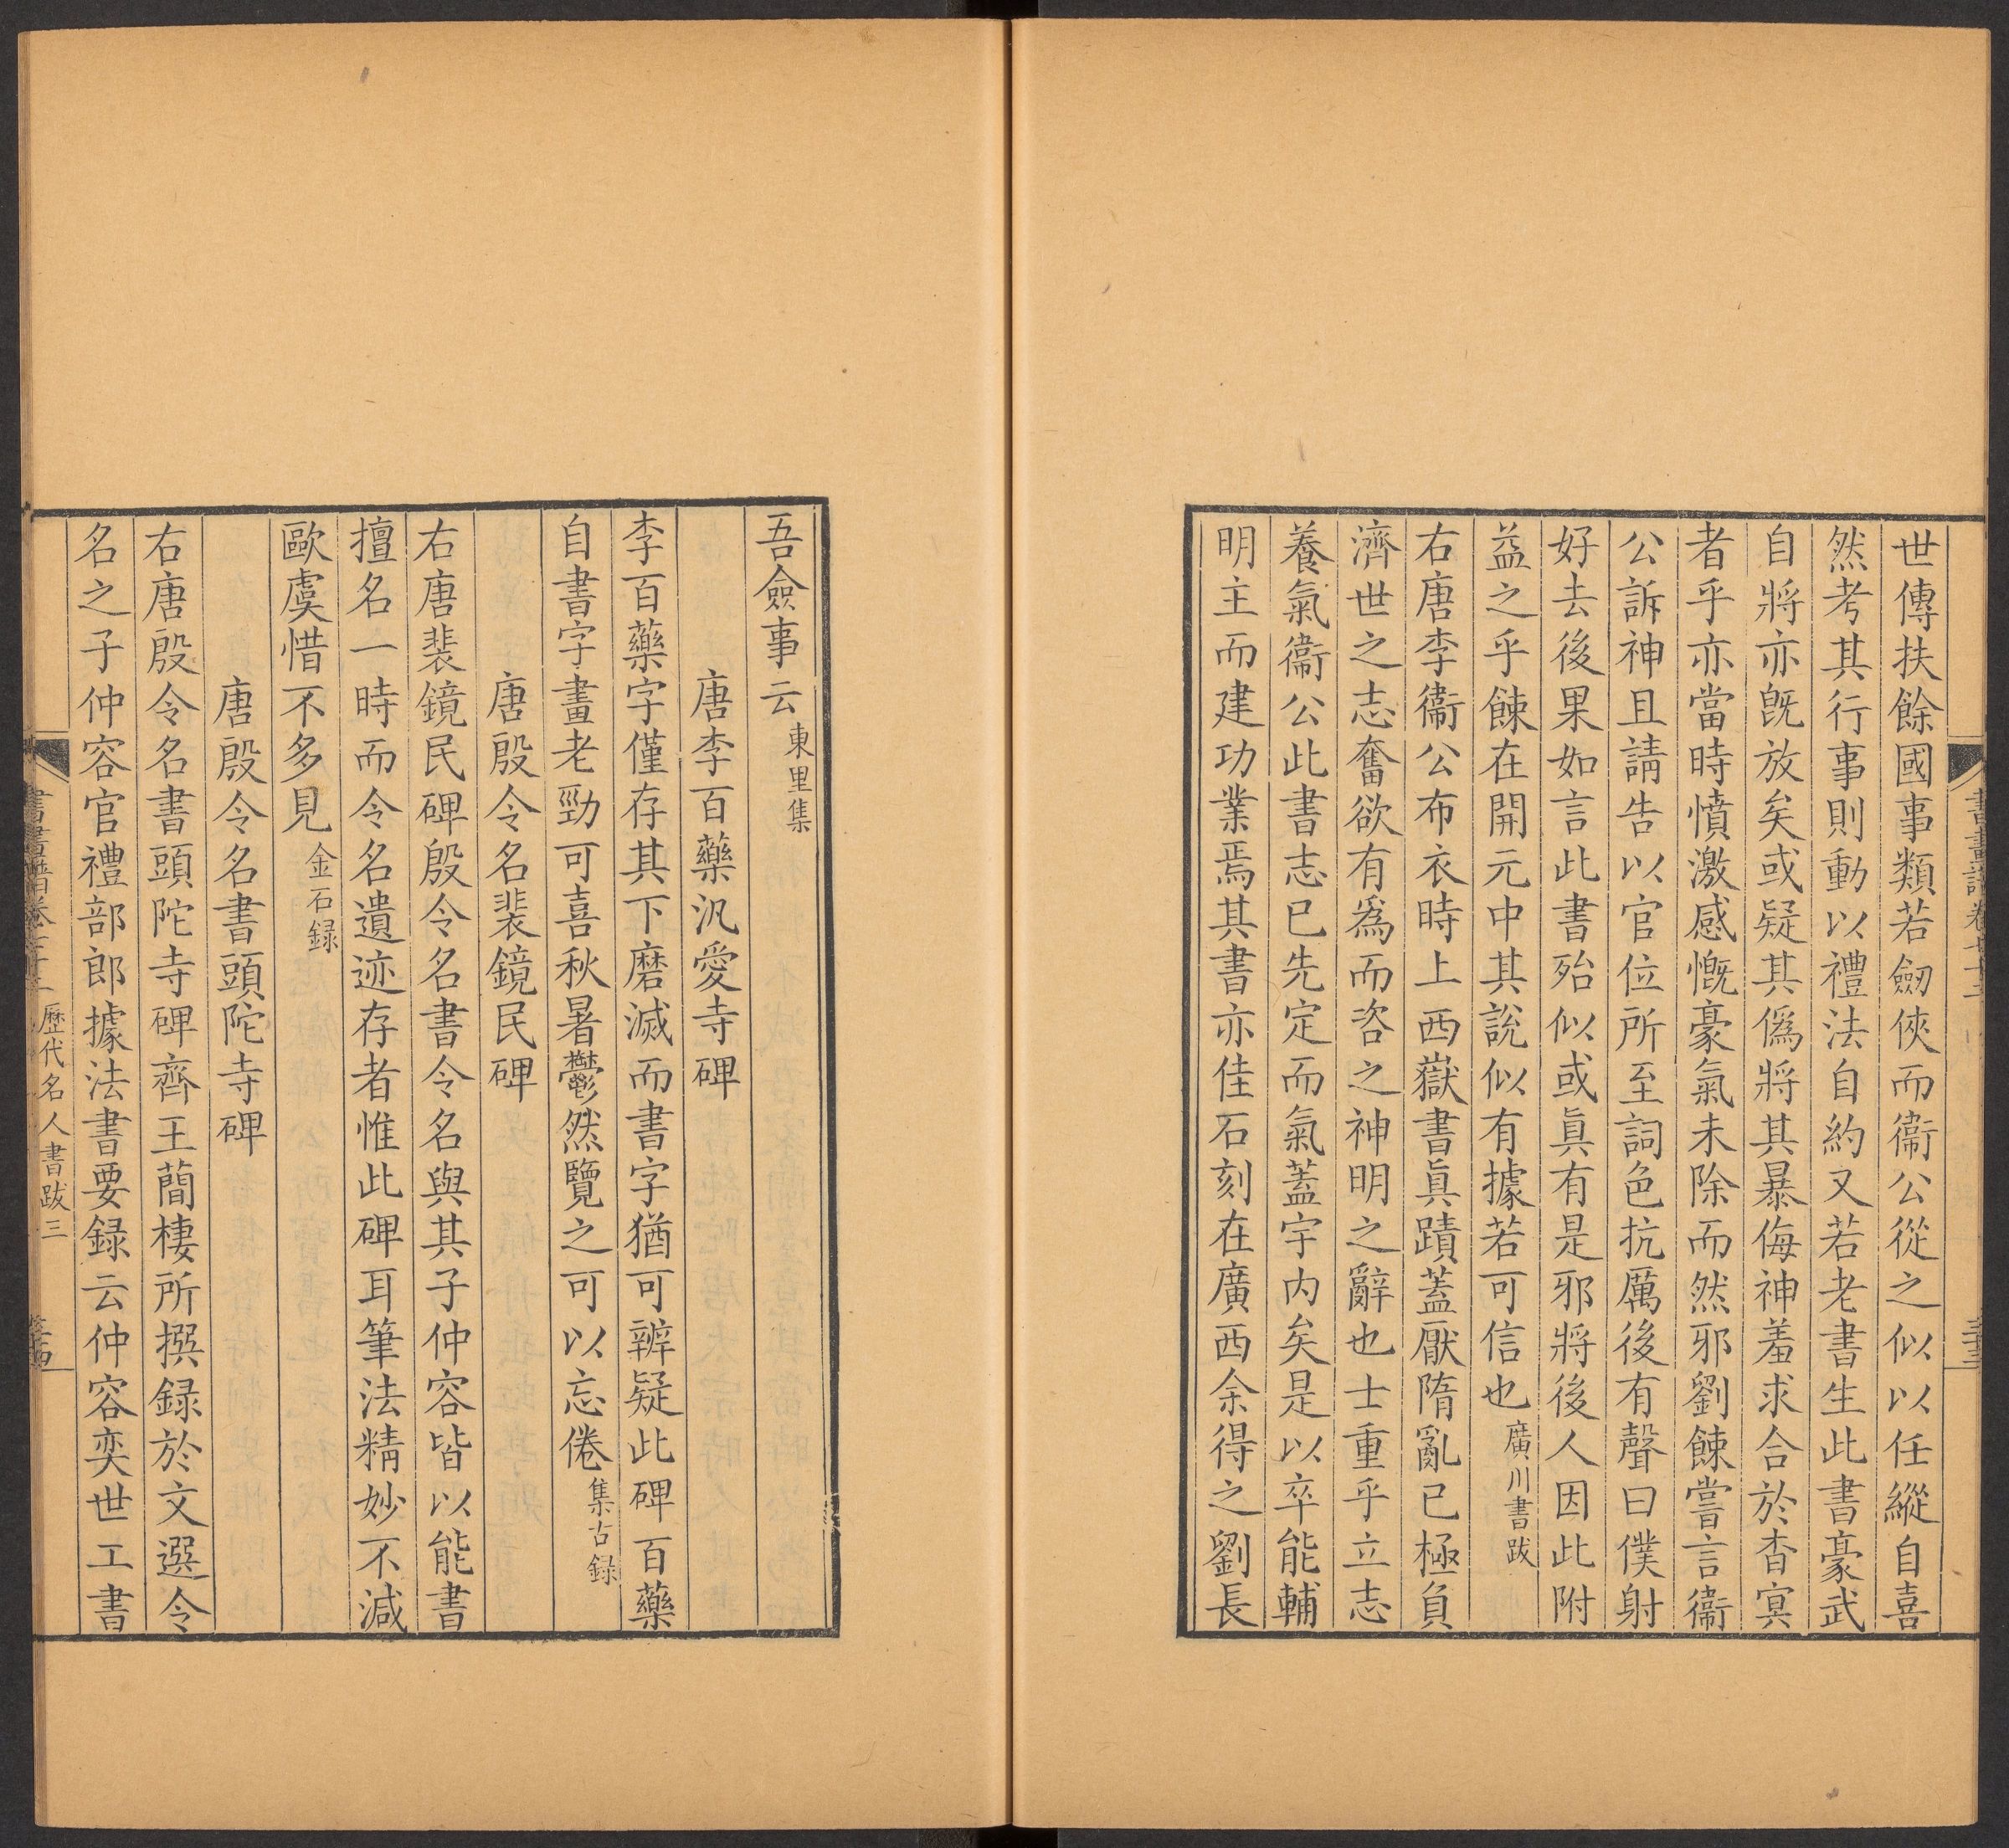 世傳扶餘國事類若劒俠而衞公從之似以任縱自喜
然考其行事則動以禮法自約又若老書生此書豪武
自將亦旣放矣或疑其僞將其暴侮神羞求合於杳㝠
者乎亦當時憤激感慨豪氣未除而然邪劉餗嘗言衞
公訴神且請告以官位所至詞色抗厲後有聲曰僕射
好去後果如言此書殆似或眞有是邪將後人因此附
益之乎餗在開元中其說似有據若可信也廣川書跋
右唐李衞公布衣時上西嶽書眞蹟蓋厭隋亂已極負
濟世之志奮欲有爲而咨之神明之辭也士重乎立志
養氣衞公此書志已先定而氣蓋宇内矣是以卒能輔
明主而建功業焉其書亦佳石刻在廣西余得之劉長
吾僉事云東里集
唐李百藥汎愛寺碑
李百藥字僅存其下磨滅而書字猶可辨疑此碑百藥
自書字畫老勁可喜秋暑鬱然覽之可以忘倦集古録
唐殷令名裴鏡民碑
右唐裴鏡民碑殷令名書令名與其子仲容皆以能書
擅名一時而令名遺迹存者惟此碑耳筆法精妙不減
歐虞惜不多見金石録
唐殷令名書頭陀寺碑
右唐殷令名書頭陀寺碑齊王蕳棲所撰録於文選令
名之子仲容官禮部郎據法書要録云仲容奕世工書
歷代名人書跋三